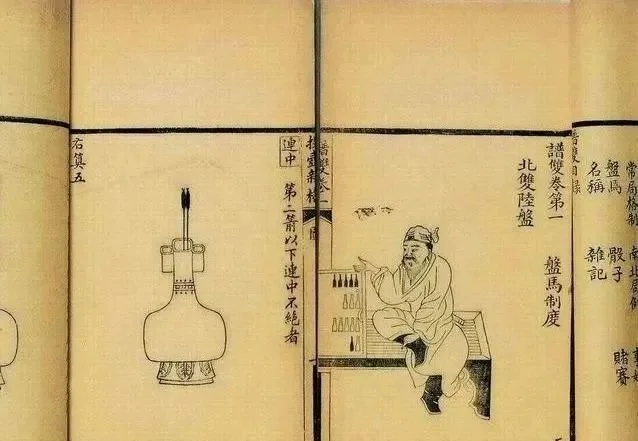 常局格制
盤馬 骰子 賭賽
名稱 雜記
譜雙卷第一 盤馬制度
北雙陸盤
譜雙卷一
投壺新格 圖
連中 第二箭以下連中不絕者
右筭五